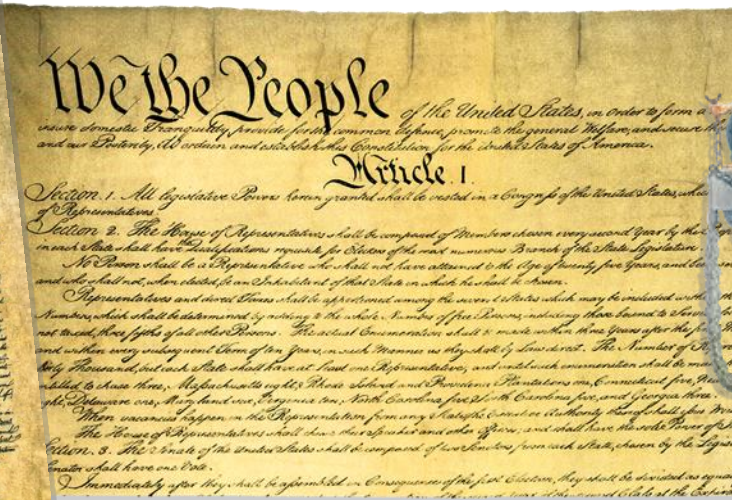 We the People of the United States, in Order to form a
insure domestic Tranquility, provide for the common defence, promote the general Welfare, and secure the
and our Posterity, do ordain and establish this Constitution for the United States of America.
Article. I.
Section. 1. All legislative Powers herein granted shall be vested in a Congress of the United States, which
of Representatives.
Section. 2. The House of Representatives shall be composed of Members chosen every second Year by the
in each State shall have Qualifications requisite for Electors of the most numerous Branch of the State Legislature.
No Person shall be a Representative who shall not have attained to the Age of twenty five Years, and been
and who shall not, when elected, be an Inhabitant of that State in which he shall be chosen.
Representatives and direct Taxes shall be apportioned among the several States which may be included within
Numbers, which shall be determined by adding to the whole Number of free Persons, including those bound to Service
not taxed, three fifths of all other Persons. The actual Enumeration shall be made within three Years after the
and within every subsequent Term of ten Years, in such Manner as they shall by Law direct. The Number of
thirty Thousand, but each State shall have at Least one Representative; and until such enumeration shall be made
entitled to chuse three, Massachusetts eight, Rhode Island and Providence Plantations one, Connecticut five, New
eight, Delaware one, Maryland six, Virginia ten, North Carolina five, South Carolina five, and Georgia three.
When vacancies happen in the Representation from any State, the Executive Authority thereof shall issue
The House of Representatives shall chuse their Speaker and other Officers; and shall have the sole Power of
Section. 3. The Senate of the United States shall be composed of two Senators from each State, chosen by the
Senator shall have one Vote.
Immediately after they shall be assembled in Consequence of the first Election, they shall be divided as